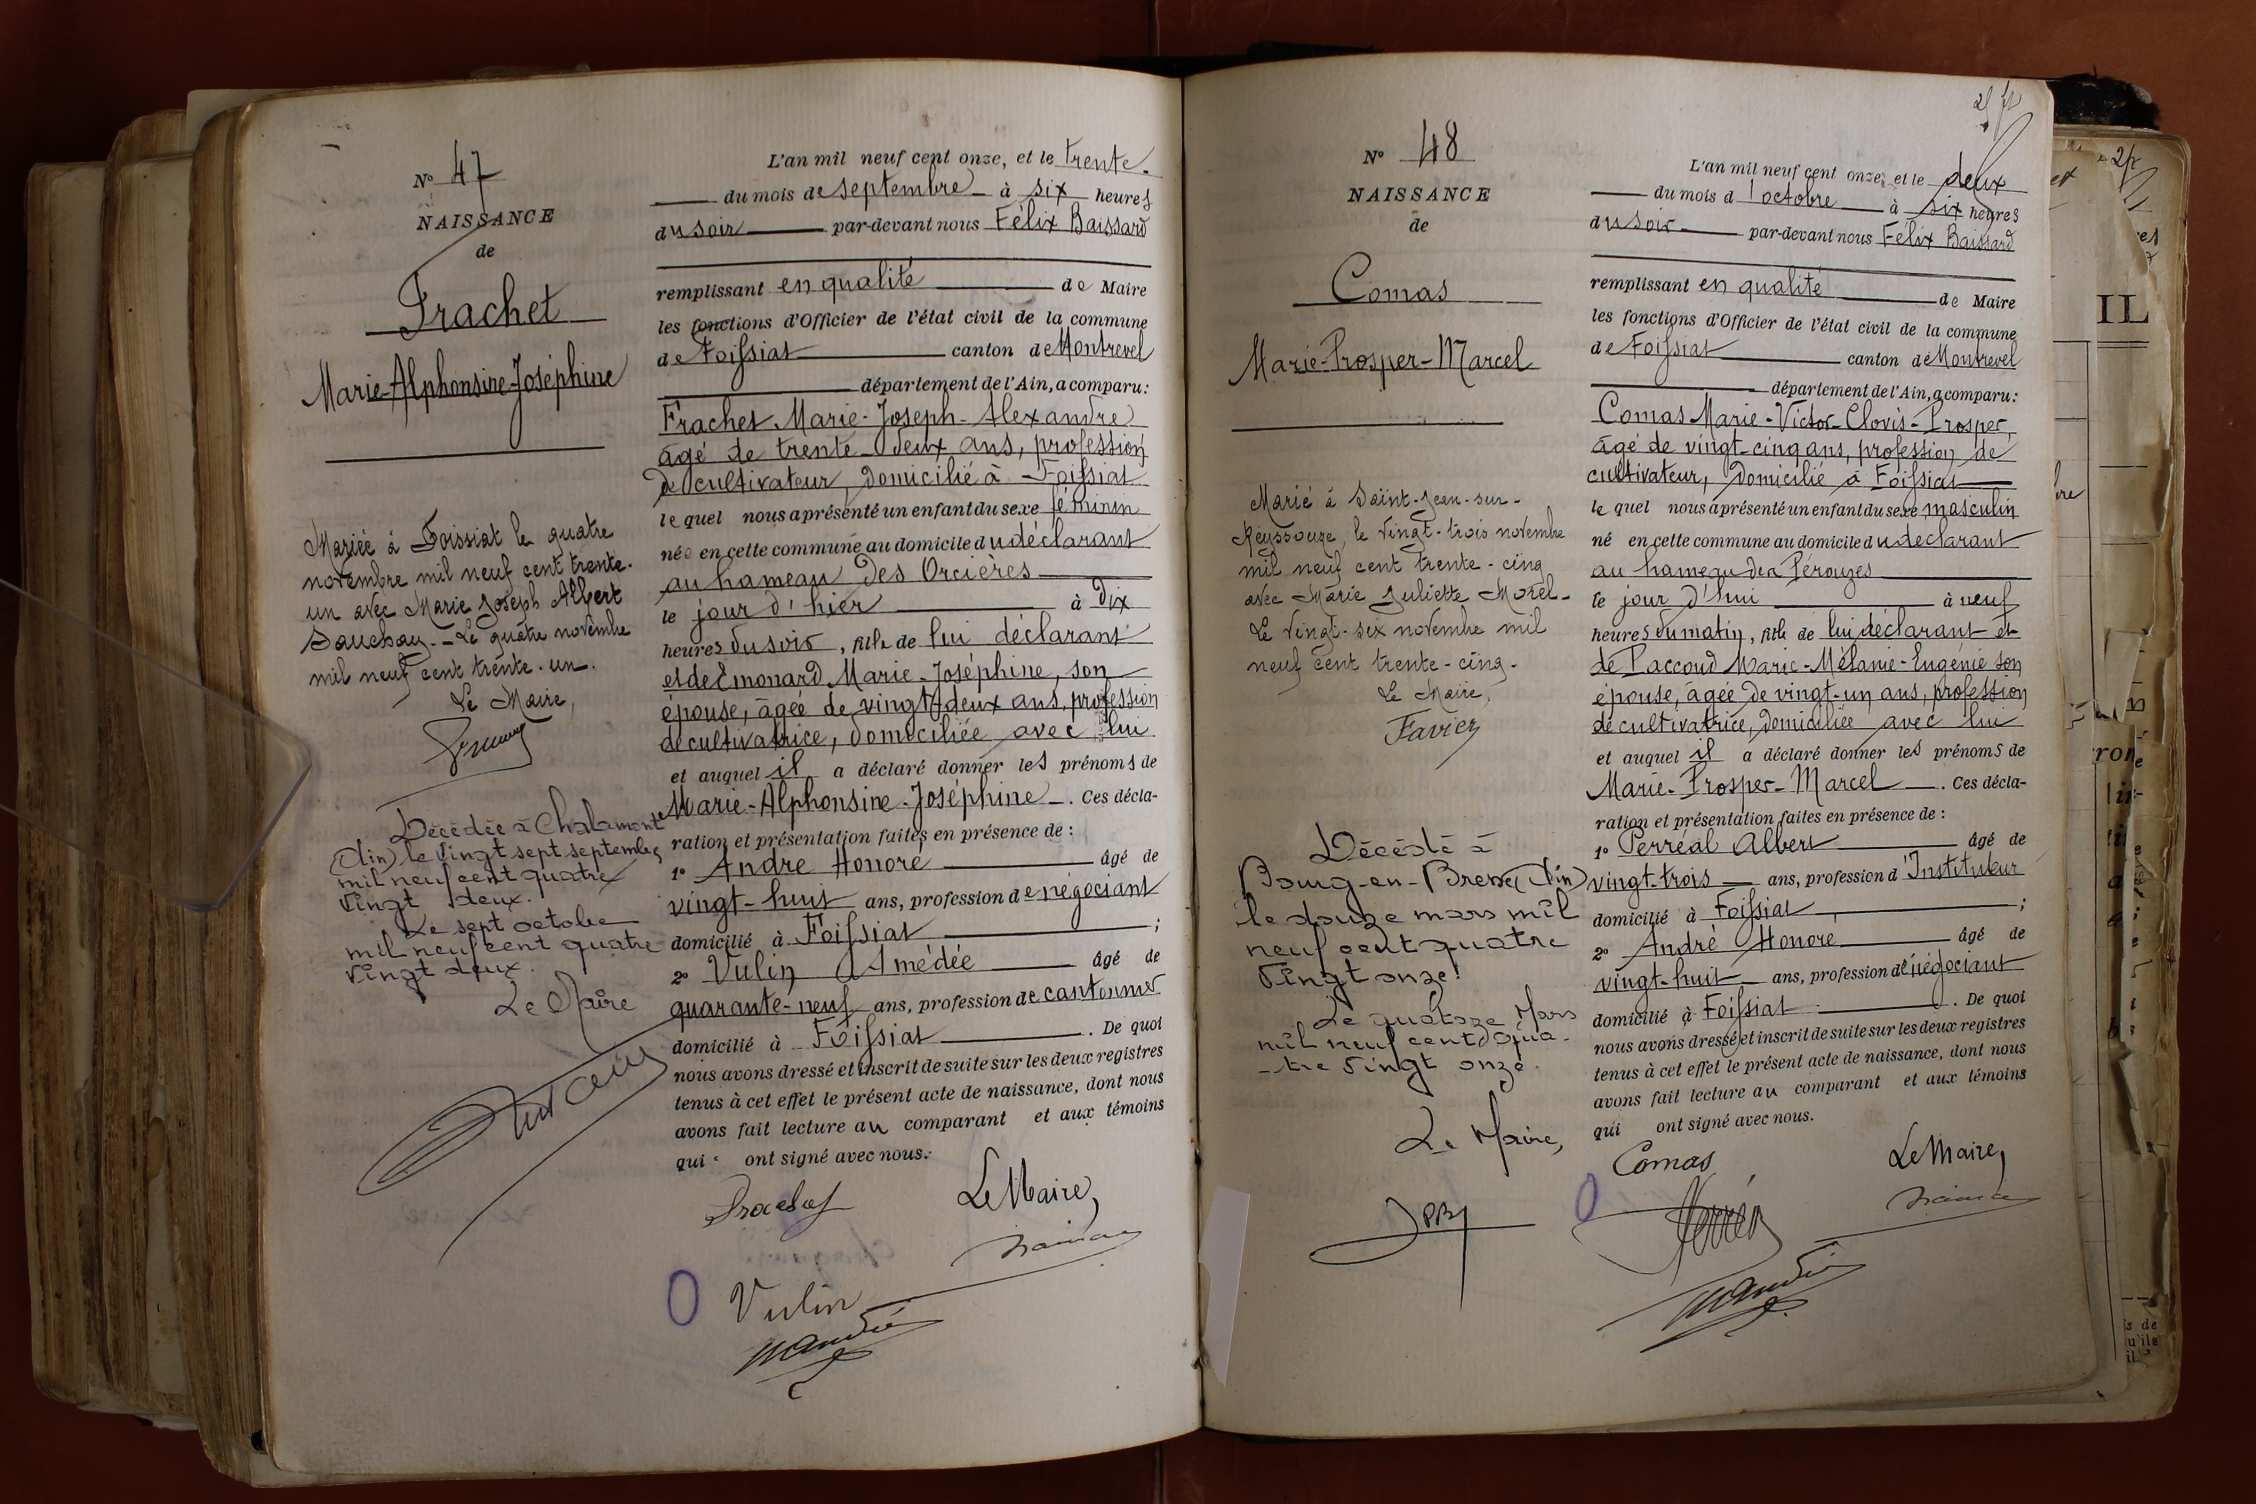 N° 47
NAISSANCE
de
Frachet
Marie-Alphonsine-Joséphine
Mariée à Foissiat le quatre
novembre mil neuf cent trente-
un avec Marie Joseph Albert
Le quatre novembre
mil neuf cent trente-un.
Le Maire,
Décédée à Chalamont
(Ain) le vingt sept septembre
mil neuf cent quatre
vingt deux.
Le sept octobre
mil neuf cent quatre
vingt deux.
Le Maire
L'an mil neuf cent onze, et le trente
du mois de septembre à six heures
du soir par-devant nous Félix Baissard
remplissant en qualité de Maire
les fonctions d'Officier de l'état civil de la commune
de Foissiat canton de Montrevel
département de l'Ain, a comparu:
Frachet Marie-Joseph-Alexandre
âgé de trente-deux ans, profession
de cultivateur, domicilié à Foissiat
lequel nous a présenté un enfant du sexe féminin
née en cette commune au domicile du déclarant
au hameau des Orcières
le jour d'hier à dix
heures du soir, fille de lui déclarant
et de Emonard Marie-Joséphine, son
épouse, âgée de vingt-deux ans, profession
de cultivatrice, domiciliée avec lui
et auquel il a déclaré donner les prénoms de
Marie-Alphonsine-Joséphine. Ces décla-
ration et présentation faites en présence de:
1° André Honoré âgé de
vingt-huit ans, profession de négociant
domicilié à Foissiat;
2° Vulin Amédée âgé de
quarante-neuf ans, profession de cantonnier
domicilié à Foissiat. De quoi
nous avons dressé et inscrit de suite sur les deux registres
tenus à cet effet le présent acte de naissance, dont nous
avons fait lecture au comparant et aux témoins
qui ont signé avec nous.
Frachet
Le Maire,
Vulin
N° 48
NAISSANCE
de
Comas
Marie-Prosper-Marcel
Marié à Saint-Jean-sur-
Reyssouze, le vingt-trois novembre
mil neuf cent trente-cinq
avec Marie Juliette Morel-
Le vingt-six novembre mil
neuf cent trente-cinq.
Le Maire,
Favier
Décédé à
Bourg-en-Bresse (Ain)
le douze mars mil
neuf cent quatre
vingt onze.
Le quatorze Mars
mil neuf cent qua-
-tre vingt onze.
Le Maire,
L'an mil neuf cent onze, et le deux
du mois d'octobre à six heures
du soir par-devant nous Félix Baissard
remplissant en qualité de Maire
les fonctions d'Officier de l'état civil de la commune
de Foissiat canton de Montrevel
département de l'Ain, a comparu:
Comas Marie-Victor-Clovis-Prosper,
âgé de vingt-cinq ans, profession de
cultivateur, domicilié à Foissiat
lequel nous a présenté un enfant du sexe masculin
né en cette commune au domicile du déclarant
au hameau des Pérouzes
le jour d'hui à neuf
heures du matin, fils de lui déclarant et
de Paccoud Marie-Mélanie-Eugénie son
épouse, âgée de vingt-un ans, profession
de cultivatrice, domiciliée avec lui
et auquel il a déclaré donner les prénoms de
Marie-Prosper-Marcel. Ces décla-
ration et présentation faites en présence de:
1° Perréal Albert âgé de
vingt-trois ans, profession d'Instituteur
domicilié à Foissiat;
2° André Honoré âgé de
vingt-huit ans, profession de négociant
domicilié à Foissiat. De quoi
nous avons dressé et inscrit de suite sur les deux registres
tenus à cet effet le présent acte de naissance, dont nous
avons fait lecture au comparant et aux témoins
qui ont signé avec nous.
Comas
Le Maire,